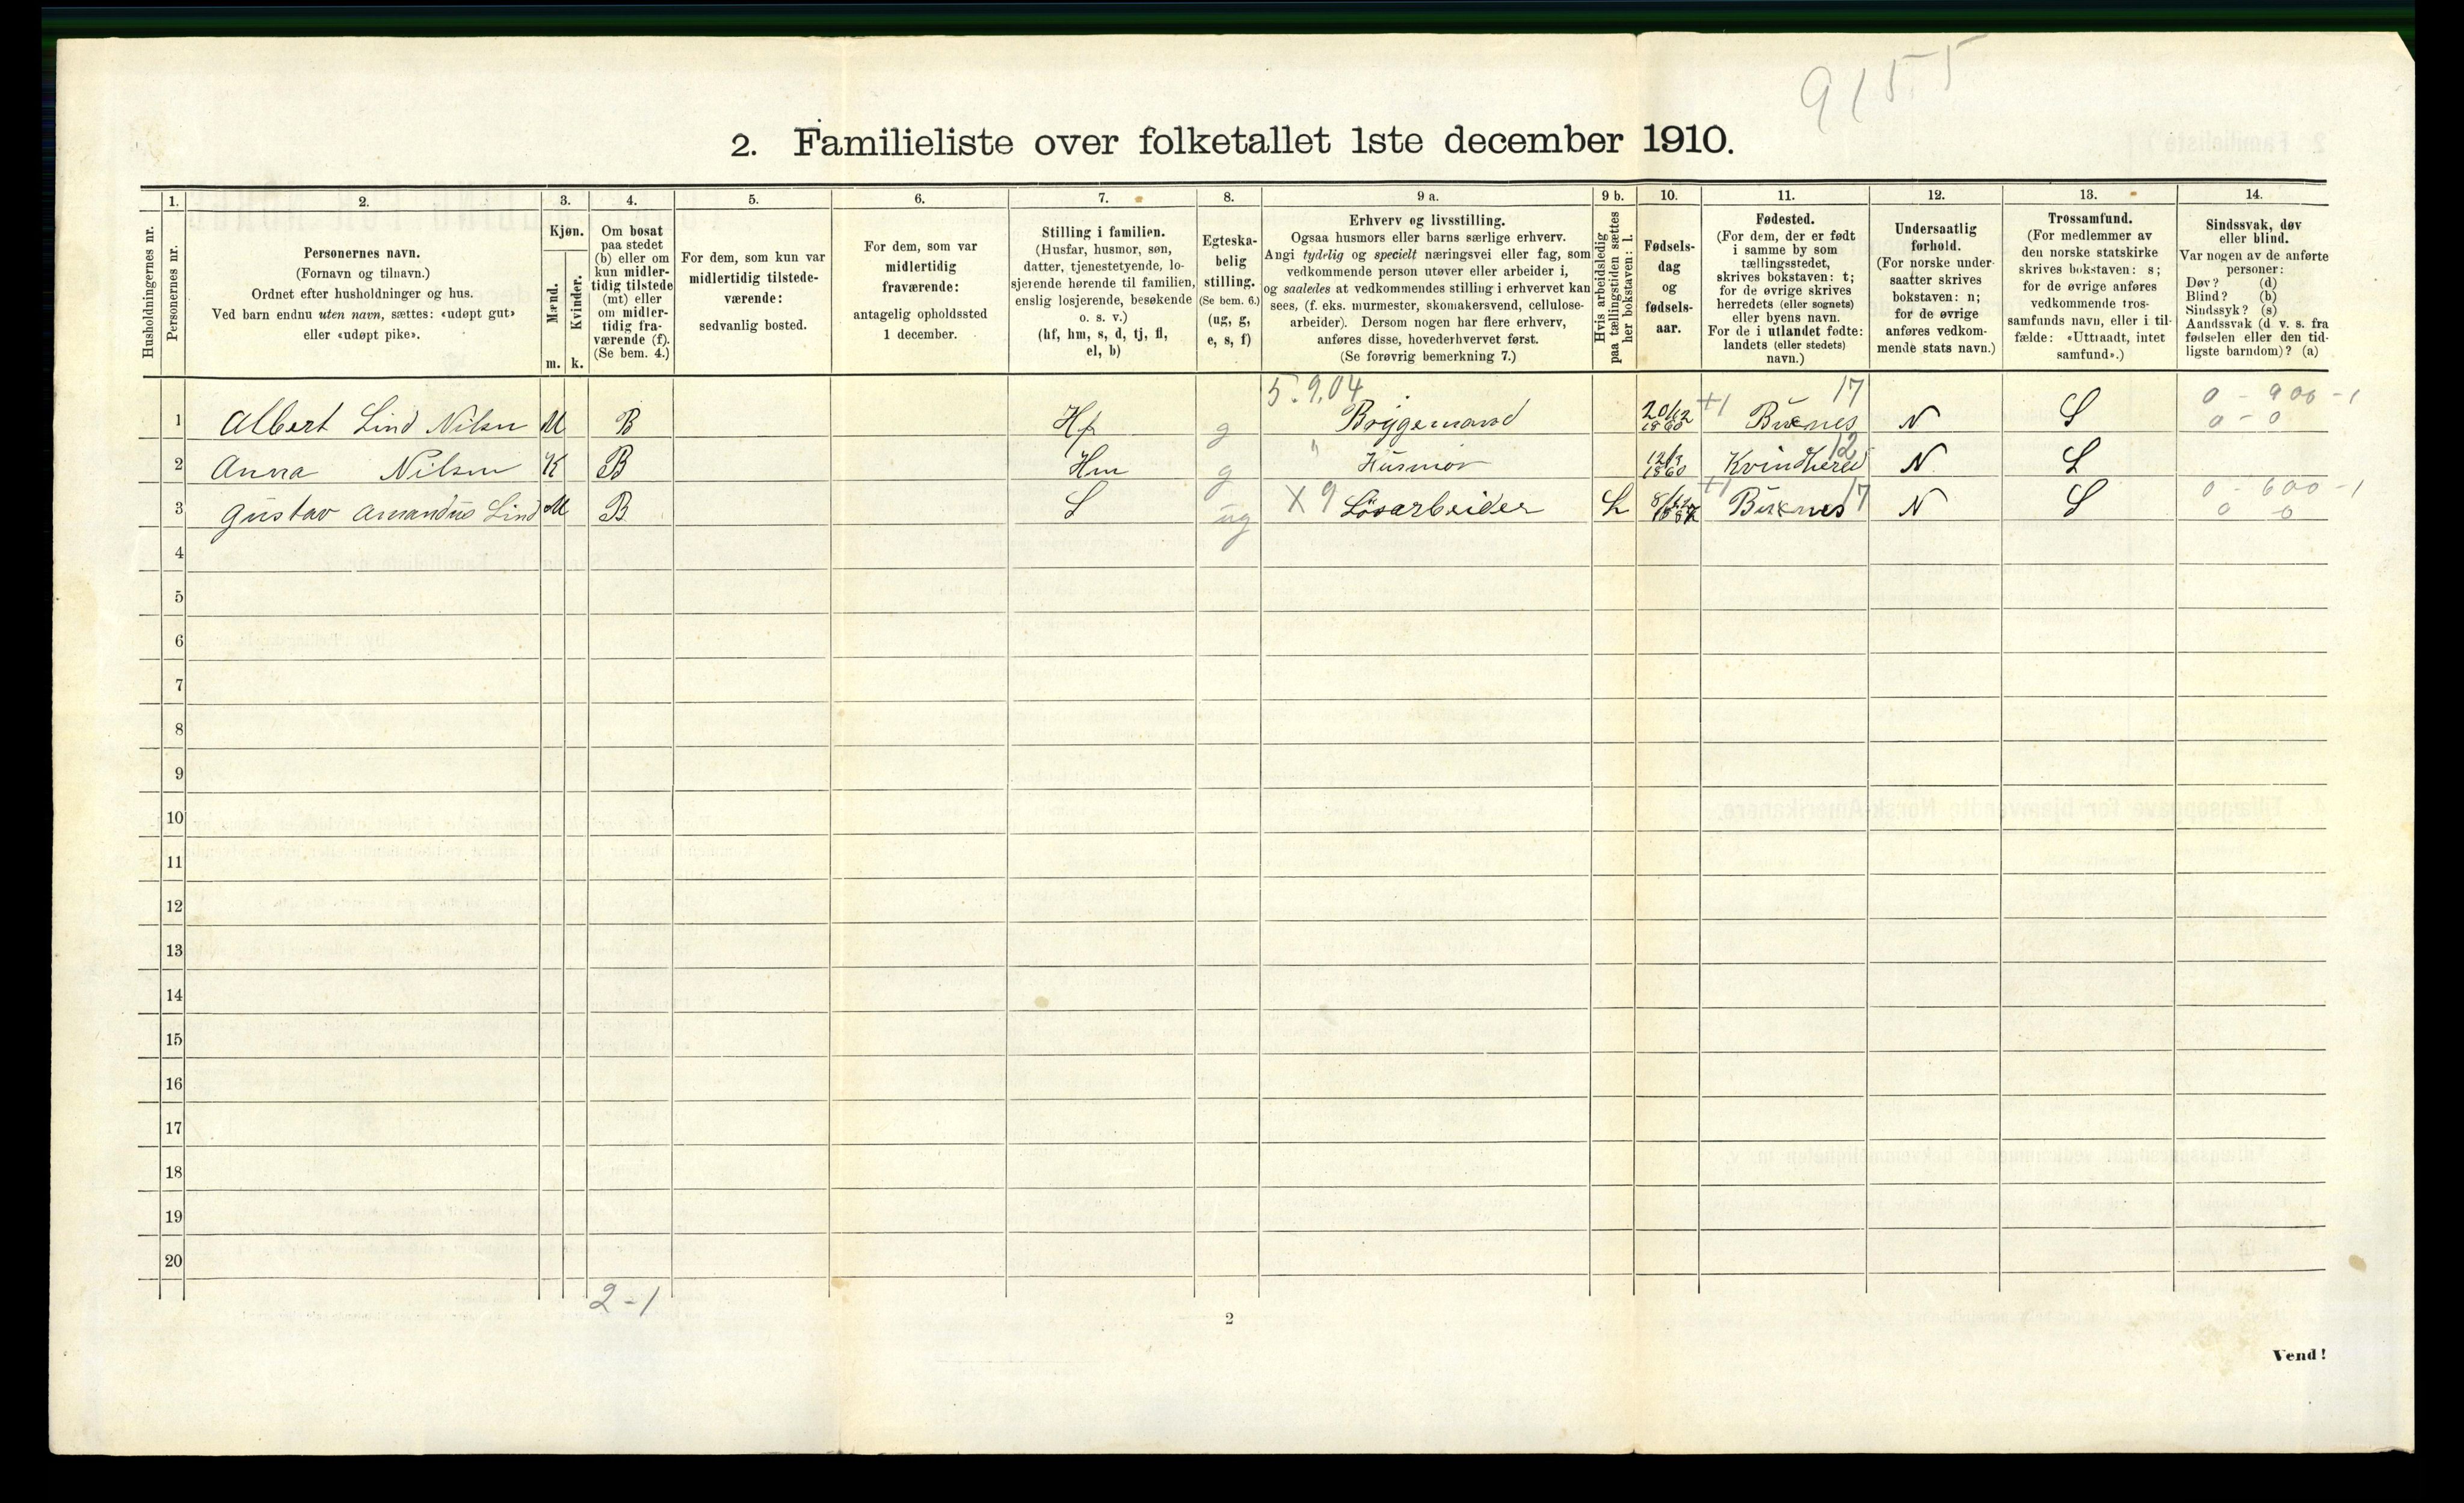 9155
2. Familieliste over folketallet 1ste december 1910.
1. 2. 3. 4. 5. 6. 7. 8. 9 a. 9 b. 10. 11. 12. 13. 14.
Husholdningernes nr.
Personernes nr.
Personernes navn.
(Fornavn og tilnavn.)
Ordnet efter husholdninger og hus.
Ved barn endnu uten navn, sættes: «udøpt gut»
eller «udøpt pike».
Kjøn.
Mænd.
Kvinder.
m. k.
Om bosat
paa stedet
(b) eller om
kun midler-
tidig tilstede
(mt) eller
om midler-
tidig fra-
værende (f).
(Se bem. 4.)
For dem, som kun var
midlertidig tilstede-
værende:
sedvanlig bosted.
For dem, som var
midlertidig
fraværende:
antagelig opholdssted
1 december.
Stilling i familien.
(Husfar, husmor, søn,
datter, tjenestetyende, lo-
sjerende hørende til familien,
enslig losjerende, besøkende
o. s. v.)
(hf, hm, s, d, tj, fl,
el, b)
Egteska-
belig
stilling.
(Se bem. 6.)
(ug, g,
e, s, f)
Erhverv og livsstilling.
Ogsaa husmors eller barns særlige erhverv.
Angi tydelig og specielt næringsvei eller fag, som
vedkommende person utøver eller arbeider i,
og saaledes at vedkommendes stilling i erhvervet kan
sees, (f. eks. murmester, skomakersvend, cellulose-
arbeider). Dersom nogen har flere erhverv,
anføres disse, hovederhvervet først.
(Se forøvrig bemerkning 7.)
Hvis arbeidsledig
paa tællingstiden sættes
her bokstaven: l.
Fødsels-
dag
og
fødsels-
aar.
Fødested.
(For dem, der er født
i samme by som
tællingsstedet,
skrives bokstaven: t;
for de øvrige skrives
herredets (eller sognets)
eller byens navn.
For de i utlandet fødte:
landets (eller stedets)
navn.)
Undersaatlig
forhold.
(For norske under-
saatter skrives
bokstaven: n;
for de øvrige
anføres vedkom-
mende stats navn.)
Trossamfund.
(For medlemmer av
den norske statskirke
skrives bokstaven: s;
for de øvrige anføres
vedkommende tros-
samfunds navn, eller i til-
fælde: «Uttraadt, intet
samfund».)
Sindssvak, døv
eller blind.
Var nogen av de anførte
personer:
Døv? (d)
Blind? (b)
Sindssyk? (s)
Aandssvak (d v. s. fra
fødselen eller den tid-
ligste barndom)? (a)
5.9.04 17 0 - 900 - 1
1 Albert Lind Nilsen M B Hf g Bryggemand 20/12 1860 Buxnes N S 0 - 0
2 Anna Nilsen K B Hm g " Husmor 12/3 1860 Kvindherred 12 N S
3 Gustav Amandus Lind M B S ug X 9 Løsarbeider L Buxnes 17 N S 0 - 600 - 1
0 0
4
5
6
7
8
9
10
11
12
13
14
15
16
17
18
19
20
2-1
2
Vend!